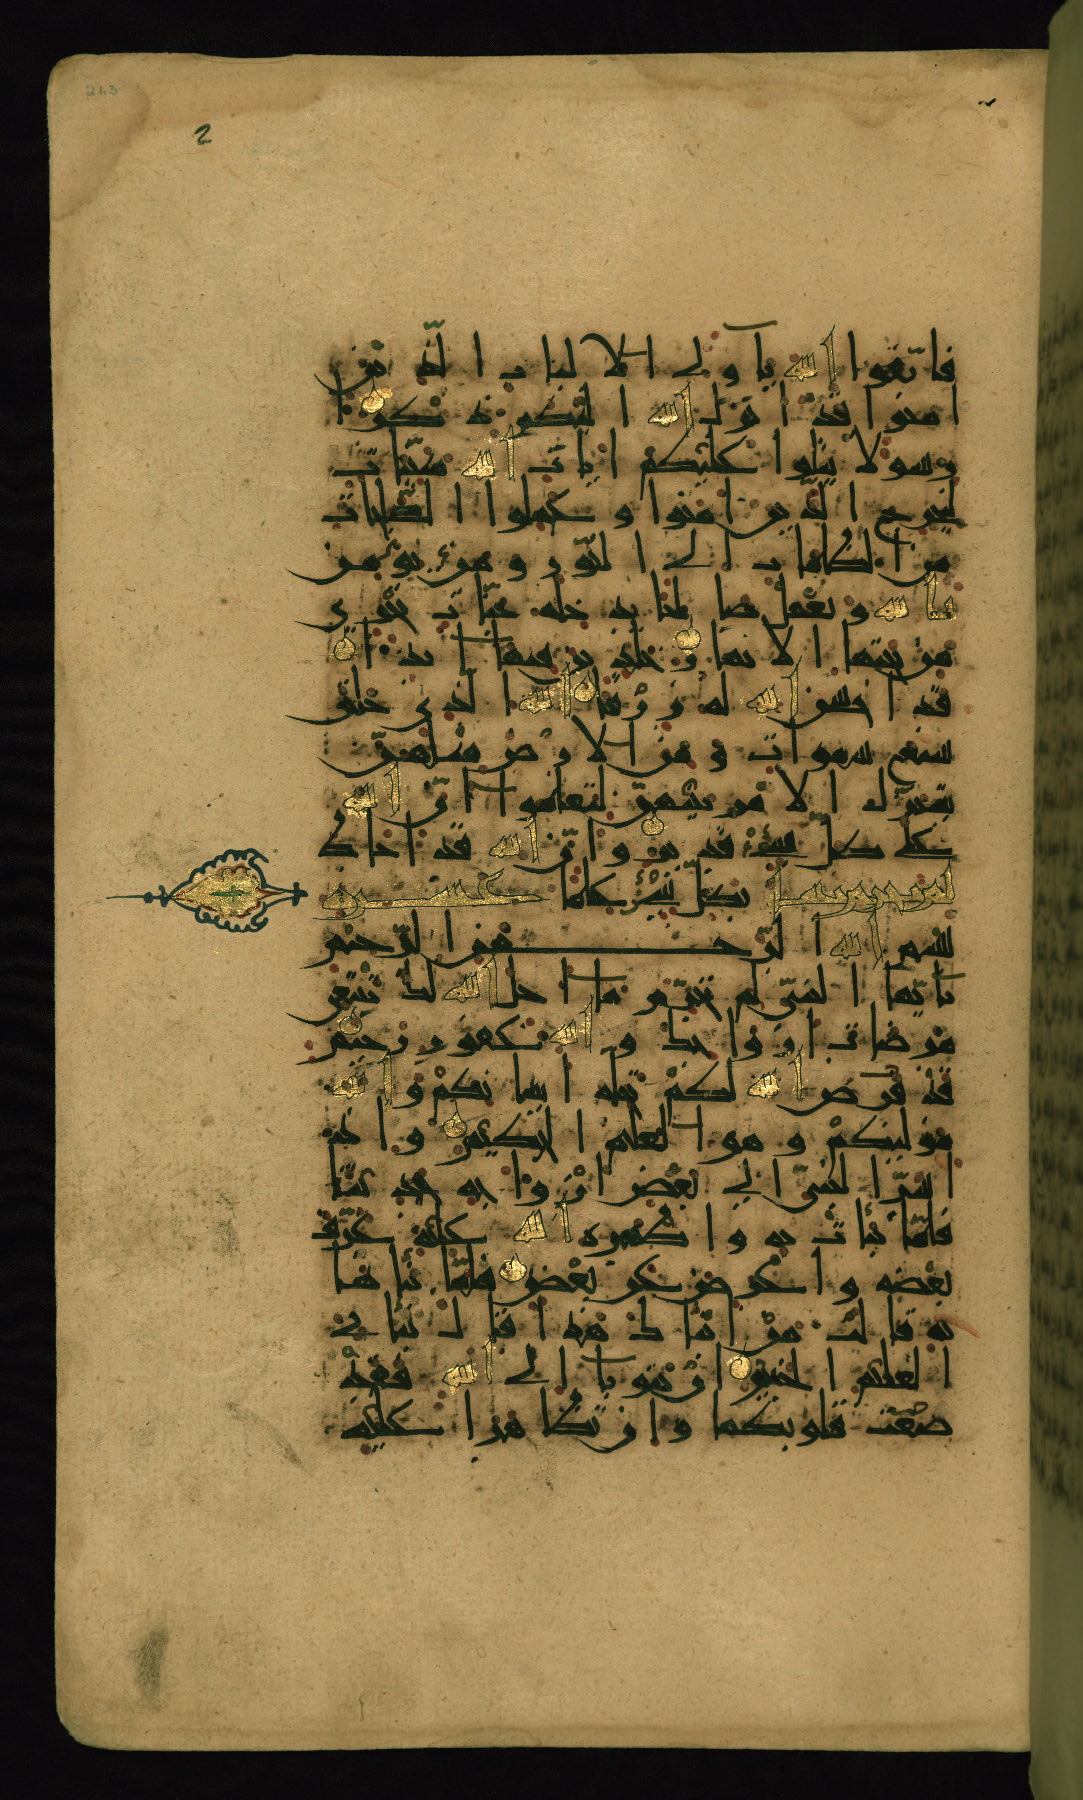 243
2
فاتقوا الله يا ولى الالباب الذين
امنوا قد انزل الله اليكم ذكرا
رسولا يتلوا عليكم ايات الله مبينات
ليخرج الذين امنوا وعملوا الصالحات
من الظلمات الى النور ومن يؤمن
بالله ويعمل صالحا يدخله جنات تجرى
من تحتها الانهار خلدين فيها ابدا
قد احسن الله له رزقا الله الذى خلق
سبع سموات ومن الارض مثلهن
يتنزل الامر بينهن لتعلموا ان الله
على كل شىء قدير وان الله قد احاط
بكل شىء علما
بسم الله الرحمن الرحيم
يايها النبى لم تحرم ما احل الله لك تبتغى
مرضات ازواجك والله غفور رحيم
قد فرض الله لكم تحلة ايمانكم والله
موليكم وهو العليم الحكيم واذ
اسر النبى الى بعض ازواجه حديثا
فلما نبات به واظهره الله عليه عرف
بعضه واعرض عن بعض فلما نباها
به قالت من انباك هذا قال نبانى
العليم الخبير ان تتوبا الى الله فقد
صغت قلوبكما وان تظاهرا عليه